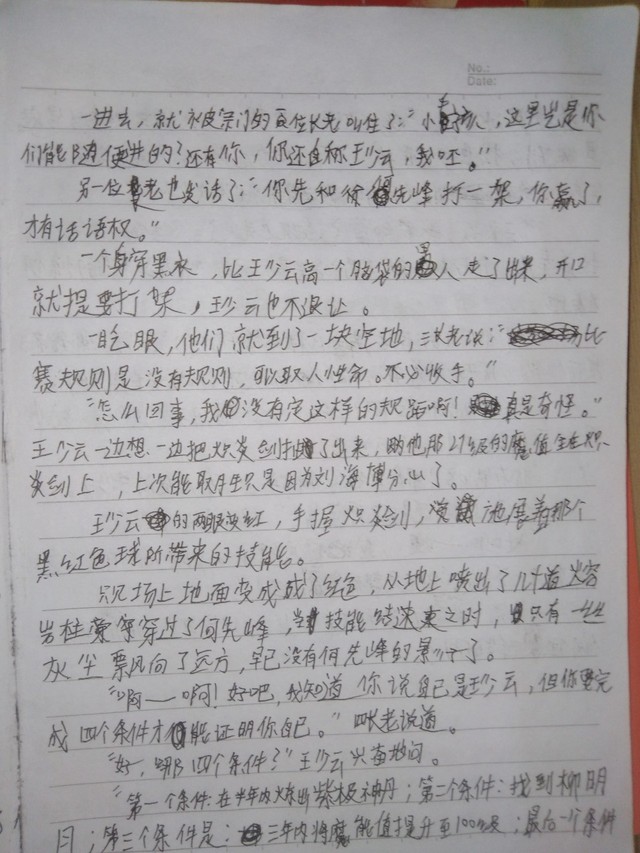 No.:
Date:
一进去，就被宗门的百位长老叫住了：“小孩，这里岂是你
们能随便进的？还有你，你还自称王少云，我呸。”
另一位长老也发话了：“你先和徐先峰打一架，你赢了，
才有话语权。”
一个身穿黑衣，比王少云高一个脑袋的人走了出来，开口
就提要打架，王少云也不退让。
一眨眼，他们就到了一块空地，三长老说：“比
赛规则是没有规则，可以取人性命。不必收手。”
“怎么回事，我没有定这样的规矩啊！真是奇怪。”
王少云一边想一边把炽炎剑抽了出来，他那27级的魔值全在炽
炎剑上，上次能取胜只是因为刘海博分心了。
王少云的两眼变红，手握炽炎剑，施展着那个
黑红色球所带来的技能。
只见场上地面变成了红色，从地上喷出了几十道火熔
岩柱穿过了何先峰，当技能结束之时，只有一丝
灰尘飘向了远方，早已没有何先峰的影子了。
“啊——啊！好吧，我知道你说自己是王少云，但你要完
成四个条件才能证明你自己。”四长老说道。
“好，哪四个条件？”王少云兴奋地问。
“第一个条件：在半年内炼出紫极神丹；第二个条件：找到柳明
月；第三个条件是：三年内将魔能值提升至100级；最后一个条件